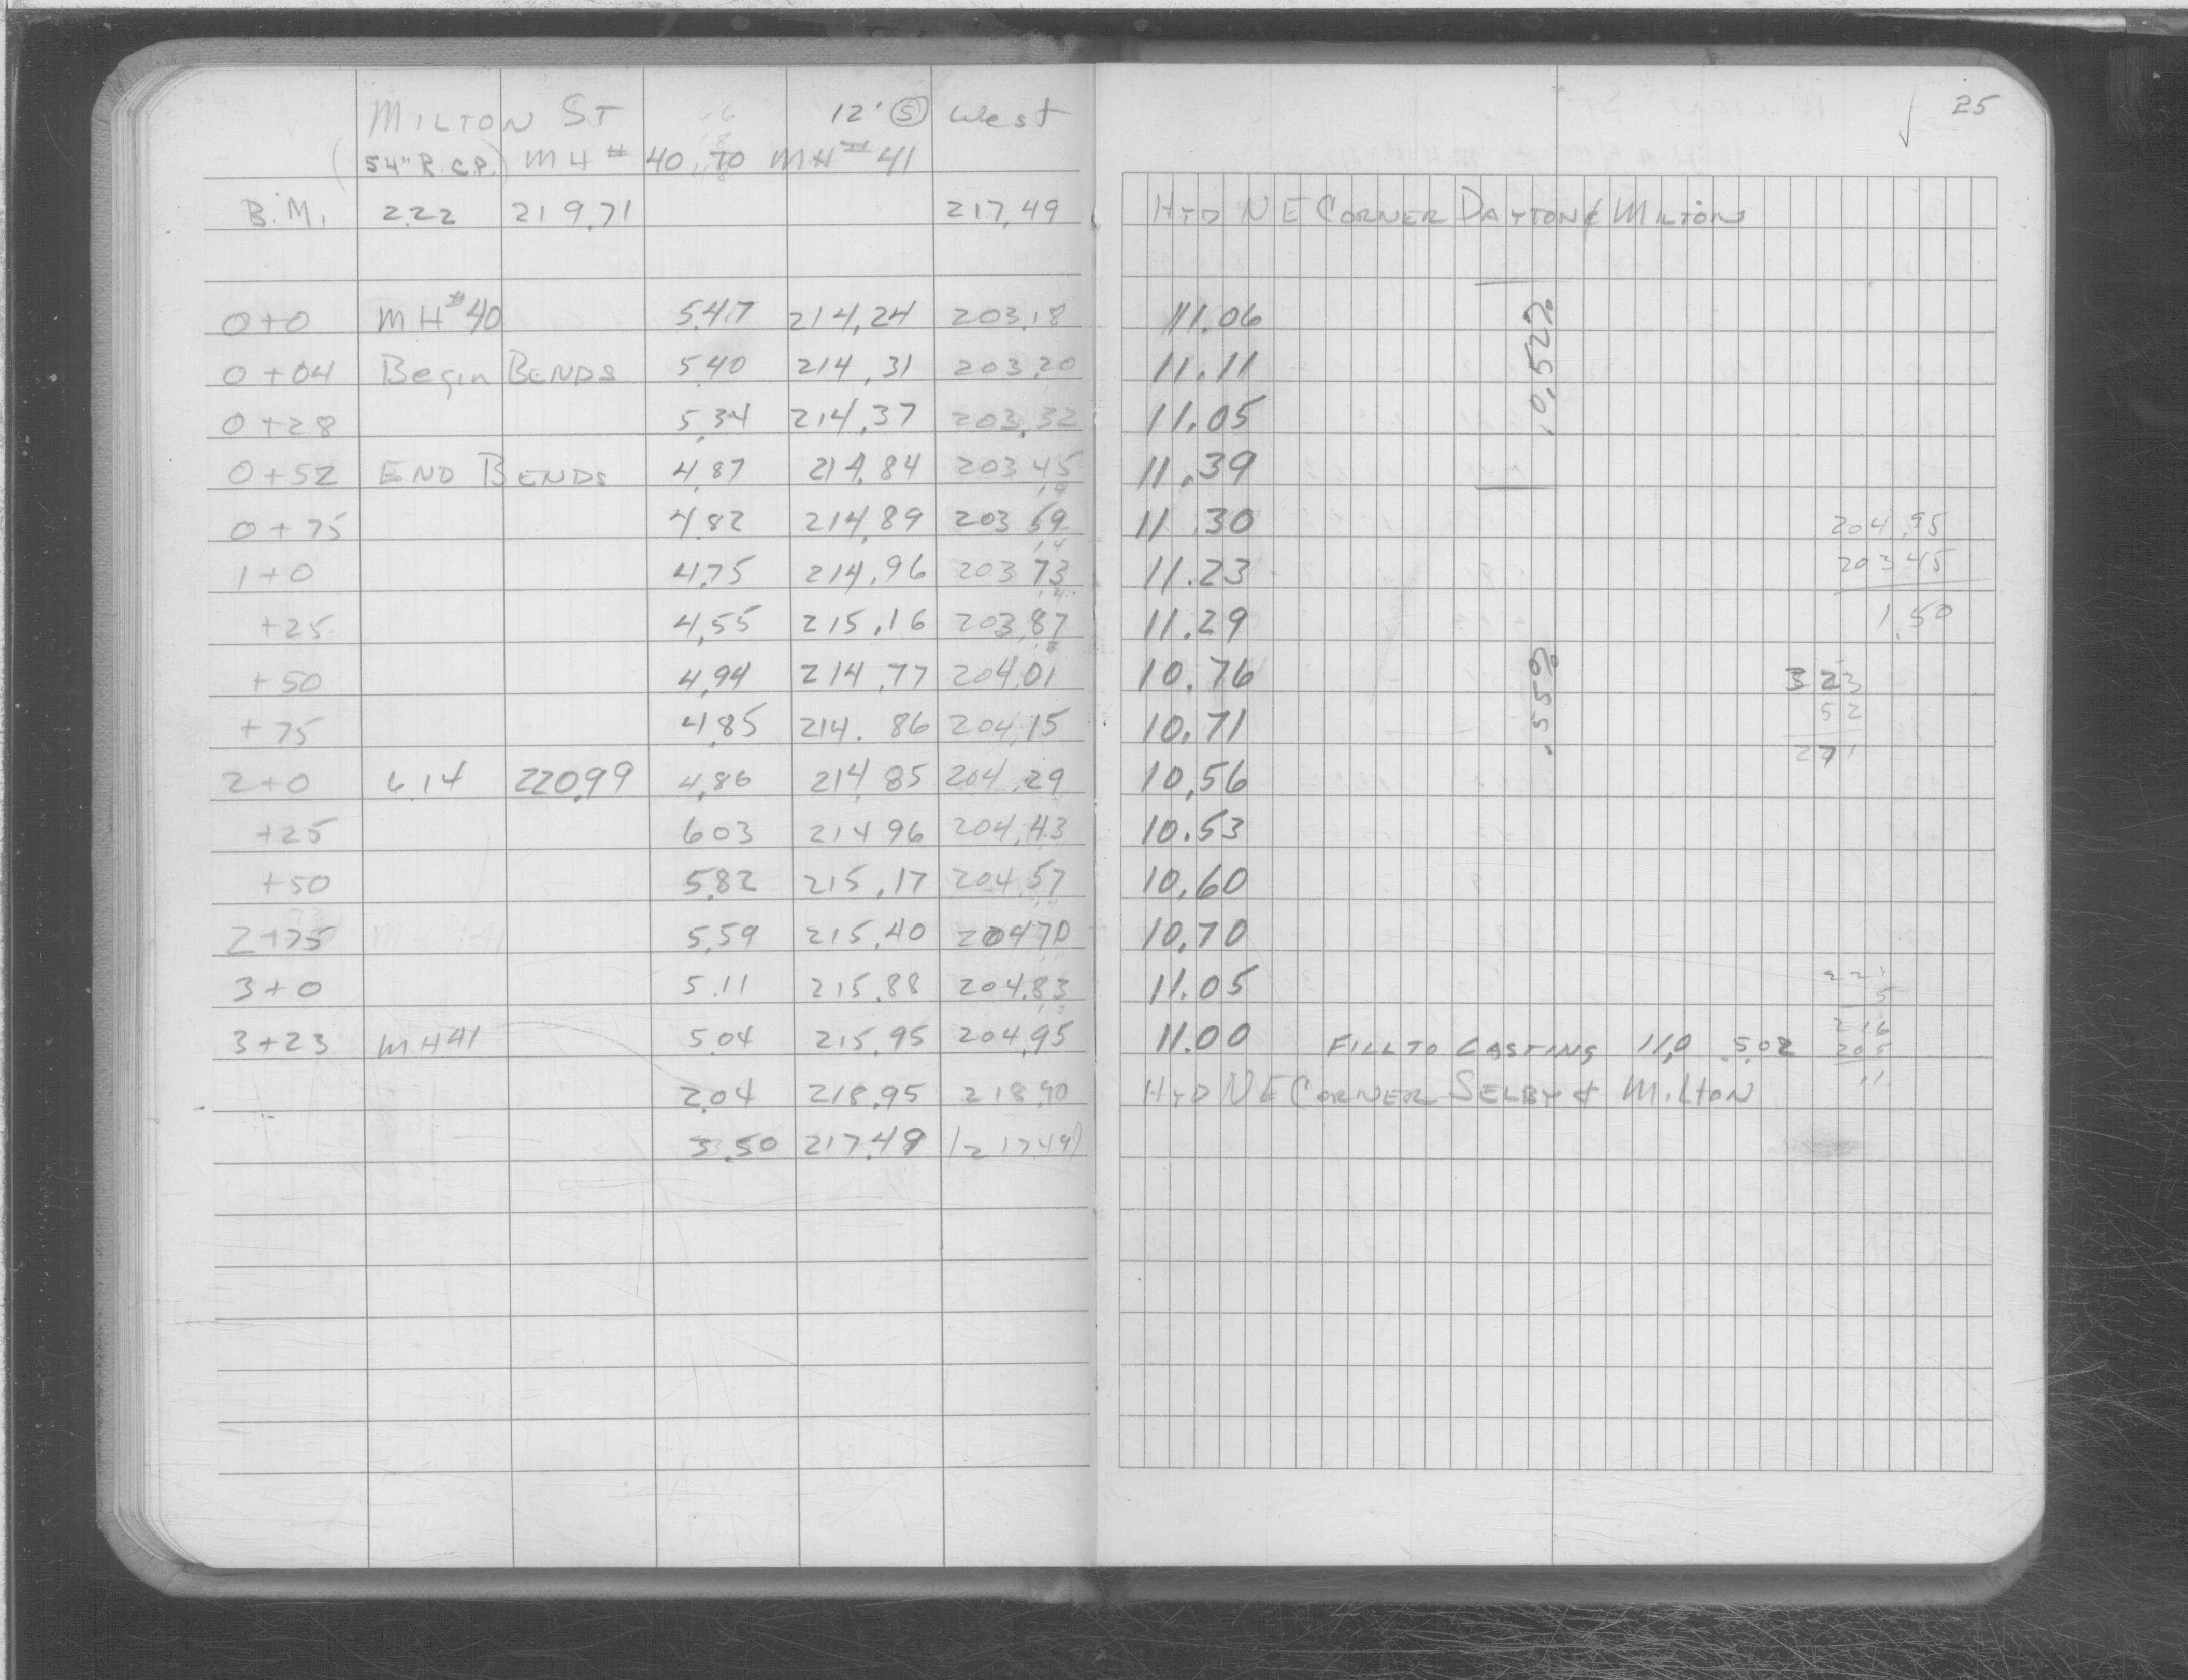 MILTON ST 12' Ⓢ West
(54" R.C.P.) MH # 40 TO MH # 41
B.M. 2.22 219.71 217.49
0+0 MH #40 5.47 214.24 203.18
0+04 Begin BENDS 5.40 214.31 203.20
0+28 5.34 214.37 203.32
0+52 END BENDS 4.87 214.84 203.45
0+75 4.82 214.89 203.59
1+0 4.75 214.96 203.73
+25 4.55 215.16 203.87
+50 4.94 214.77 204.01
+75 4.85 214.86 204.15
2+0 6.14 220.99 4.86 214.85 204.29
+25 6.03 214.96 204.43
+50 5.82 215.17 204.57
2+75 5.59 215.40 204.70
3+0 5.11 215.88 204.83
3+23 MH 41 5.04 215.95 204.95
2.04 218.95 218.90
3.50 217.49 (217.49)
25
HYD NE CORNER DAYTON & MILTON
11.06
11.11
11.05
11.39
.0.52%
11.30 204.95
11.23 203.45
11.29 1.50
10.76 323
10.71 52
.55% 271
10.56
10.53
10.60
10.70
11.05
11.00 FILL TO CASTING 11.0 5.02
HYD NE CORNER SELBY & MILTON